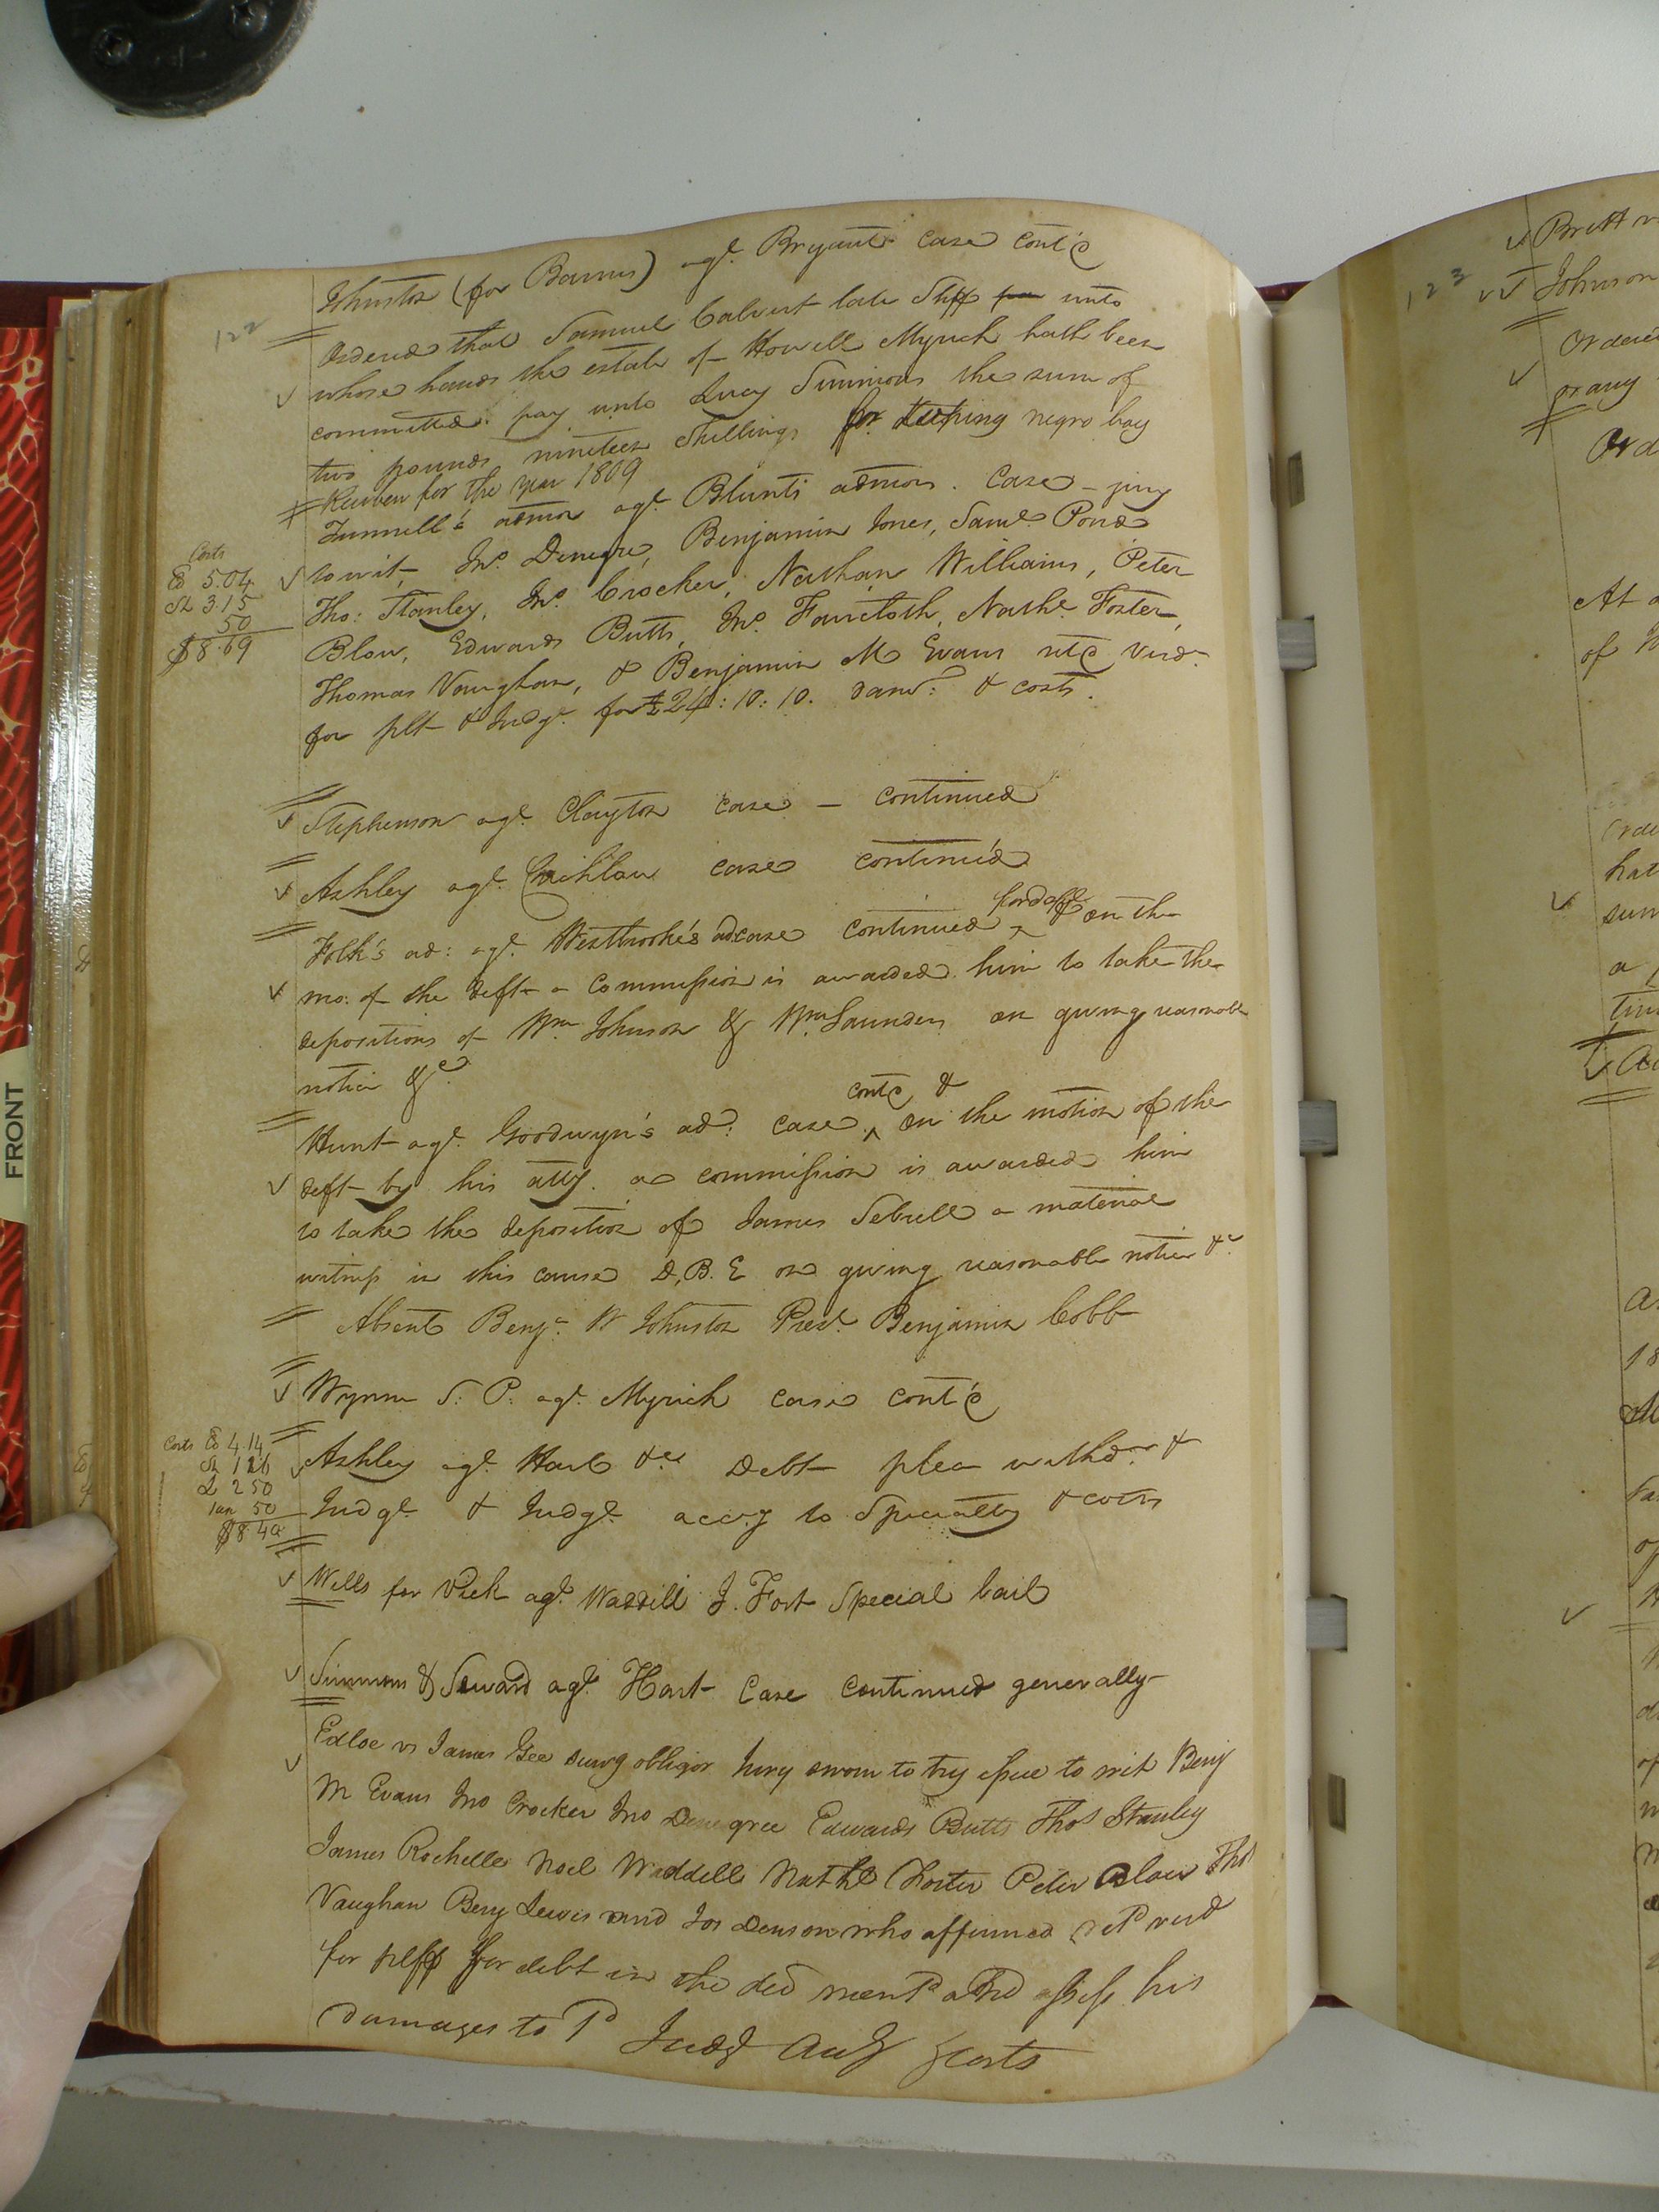 122
Johnston (for Barnes) agt. Bryant case cont'd
Ordered that Samuel Calvert late Shff unto
whose hands the estate of Howell Myrick hath been
committed pay unto Lucy Simmons the sum of
two pounds nineteen Shillings for keeping negro boy
Reuben for the year 1809
Costs
5.04
3.15
50
$8.69
Tunnell's admor agt. Blunts admors. Case - jury
to wit, Jno. Denegre, Benjamin Jones, Saml. Pond
Tho: Stanley, Jno. Crocker, Nathan Williams, Peter
Blow, Edwards Butts, Jno. Faircloth, Nathl. Foster,
Thomas Vaughan, & Benjamin M Evans retd verd.
for plt & Judgt. for £24:10:10. dam: & costs.
Stephenson agt. Clayton case - continued
Ashley agt. Crichlow case continued
Folk's ad: agt. Westbrooke's ad case continued for deft & on the
mo: of the deft a Commission is awarded him to take the
depositions of Wm Johnson & Wm Saunders on giving reasonable
notice &c
Hunt agt. Goodwyn's ad: case contd & on the motion of the
deft by his atty. a commission is awarded him
to take the deposition of James Sebrell a material
witness in this cause D.B.E on giving reasonable notice &c
Absent Benja. W Johnston Prest. Benjamin Cobb
Wynne S. P. agt. Myrick case cont'd
Costs 4.14
126
250
50
$8.40
Ashley agt. Hart &c Debt plea withdn. &
Judgt. & Judgt. accg to Specialty & costs
Wills for Vick agt. Waddill J. Fort Special bail
Simmons & Seward agt. Hart Case continued generally
Edloe vs James Gee survg obligor Jury sworn to try issue to wit Benj
M Evans Jno Crocker Jno Denegree Edwards Butts Thos Stanley
James Rochelle Noel Waddell Nathl Foster Peter Blow Thos
Vaughan Benj Lewis and Jos Denson who affirmed retd verd
for pltff for debt in the decl ment and assess his
damages to 1d Judgt accg & costs
FRONT
123
Brett
Johnson
or any
At a
of
hat
sum
a
18